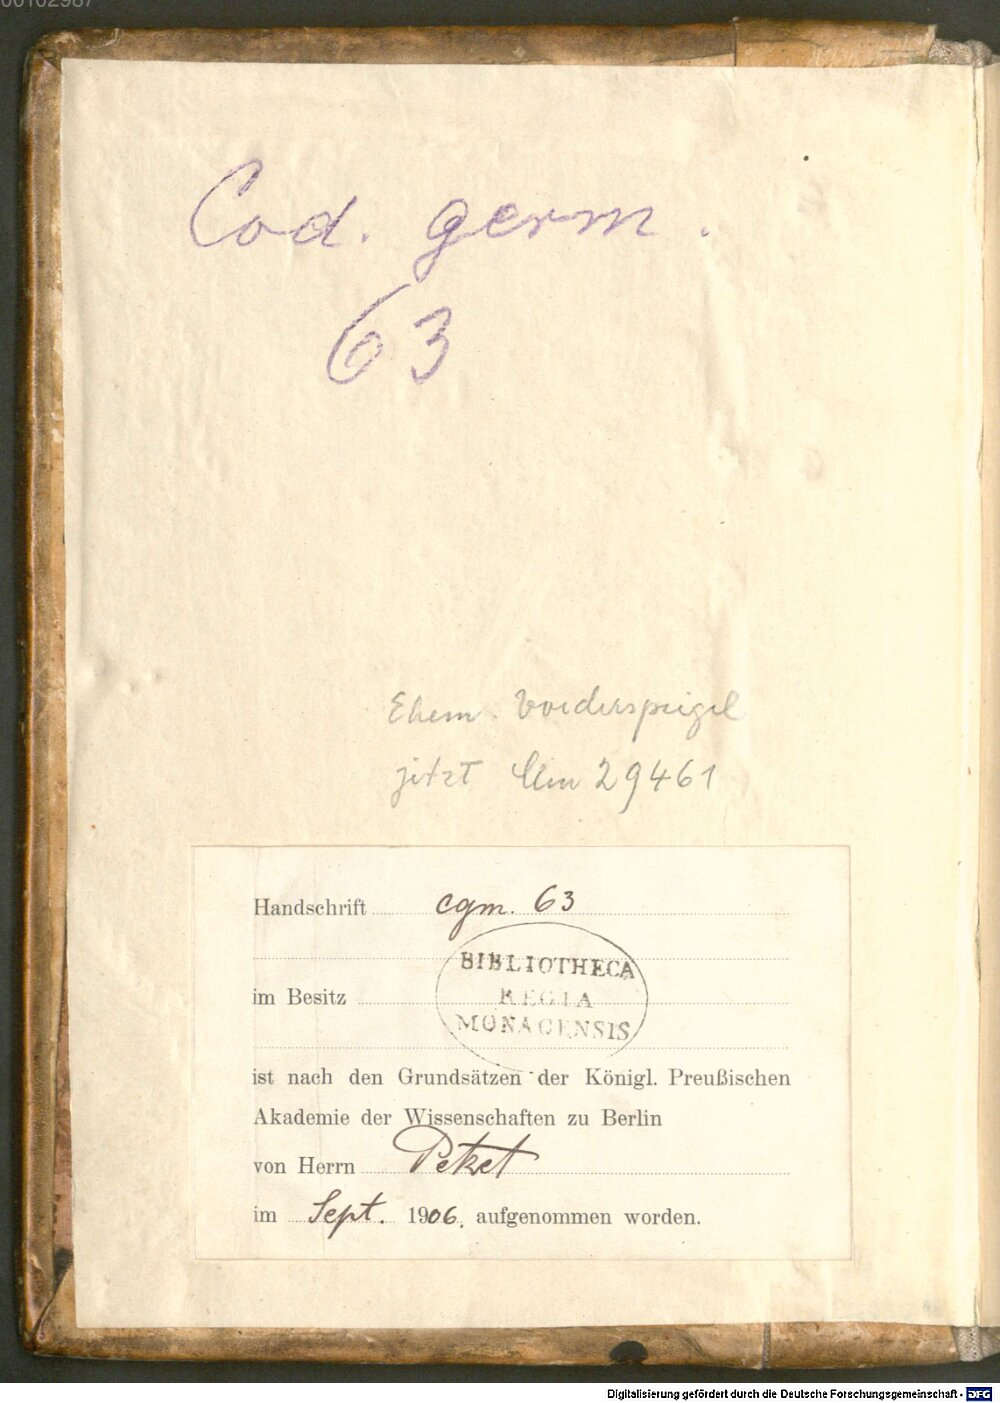 00102987
Cod. germ.
63
Ehem. Vorderspiegel
jetzt Clm 29461
Handschrift cgm. 63
BIBLIOTHECA
REGIA
MONACENSIS
im Besitz
ist nach den Grundsätzen der Königl. Preußischen
Akademie der Wissenschaften zu Berlin
von Herrn Petzet
im Sept. 1906. aufgenommen worden.
Digitalisierung gefördert durch die Deutsche Forschungsgemeinschaft - DFG